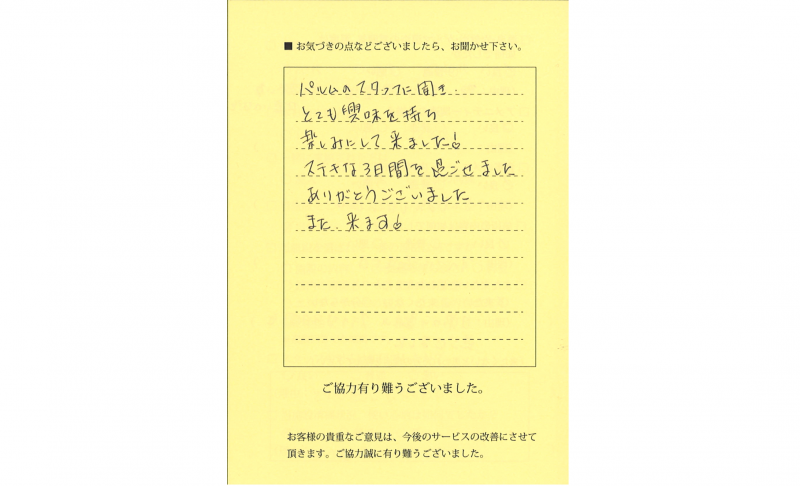 ■ お気づきの点などございましたら、お聞かせ下さい。
パルムのスタッフに聞き
とても興味を持ち
楽しみにして来ました!
ステキな3日間を過ごせました
ありがとうございました
また 来ます!
ご協力有り難うございました。
お客様の貴重なご意見は、今後のサービスの改善にさせて
頂きます。ご協力誠に有り難うございました。